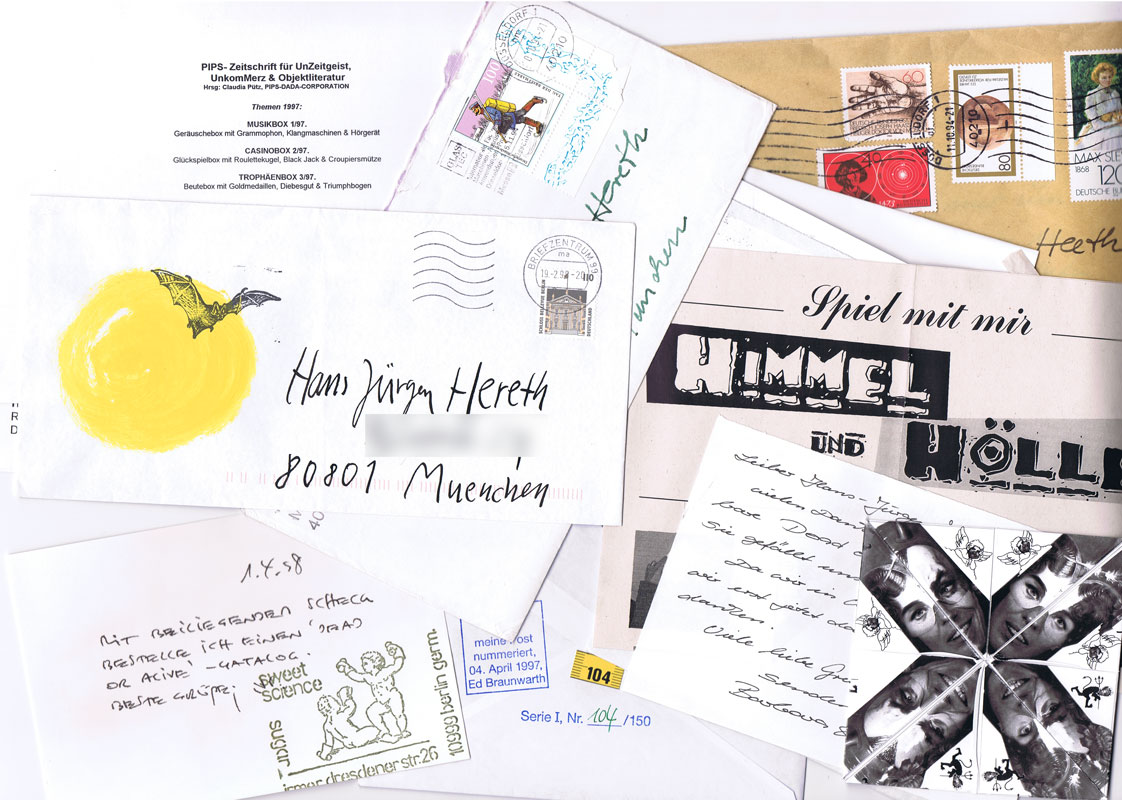 PIPS- Zeitschrift für UnZeitgeist,
UnkomMerz & Objektliteratur
Hrsg: Claudia Pütz, PIPS-DADA-CORPORATION
Themen 1997:
MUSIKBOX 1/97.
Geräuschebox mit Grammophon, Klangmaschinen & Hörgerät
CASINOBOX 2/97.
Glückspielbox mit Roulettekugel, Black Jack & Croupiersmütze
TROPHÄENBOX 3/97.
Beutebox mit Goldmedaillen, Diebesgut & Triumphbogen
100
Hereth
60
40210
11.10.94-21
80
40
1473
MAX
1868
120
DEUTSCHE
Heeth
BRIEFZENTRUM 99
ma
SCHLOSS BELLEVUE BERLIN
DEUTSCHLAND
Hans Jürgen Hereth
80801 Muenchen
Spiel mit mir
HIMMEL
UND
HÖLL
R
D
40
Lieber Hans-Jürg
vielen Dan
Sie gefällt un
Da wir in
wir erst jetzt da
danken.
Viele liebe Grü
sende
Barbara
1.4.98
MIT BEILIEGENDEM SCHECK
BESTELLE ICH EINEN 'DEAD
OR ALIVE' -KATALOG.
BESTE GRÜSSE
sweet
science
sugar
irmer dresdener str.26
10999 berlin germ.
meine Post
nummeriert,
04. April 1997,
Ed Braunwarth
104
Serie I, Nr. 104 /150